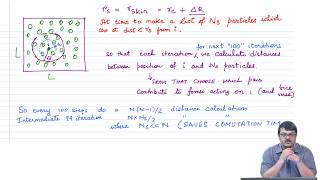 rs = rskin = rc + ΔR
At time to make a list of Ns particles which
are at dist < rs from i.
for next "100" iterations
so that each iteration, we calculate distances
between position of i and Ns particles.
L
L
↳ FROM THAT CHOOSE which pairs
contribute to forces acting on i (and vice
versa)
So every 100 steps do a N(N-1)/2 distance calculations
Intermediate 99 iteration N×Ns/2 " "
where Ns<<N (SAVES COMUTATION TIME